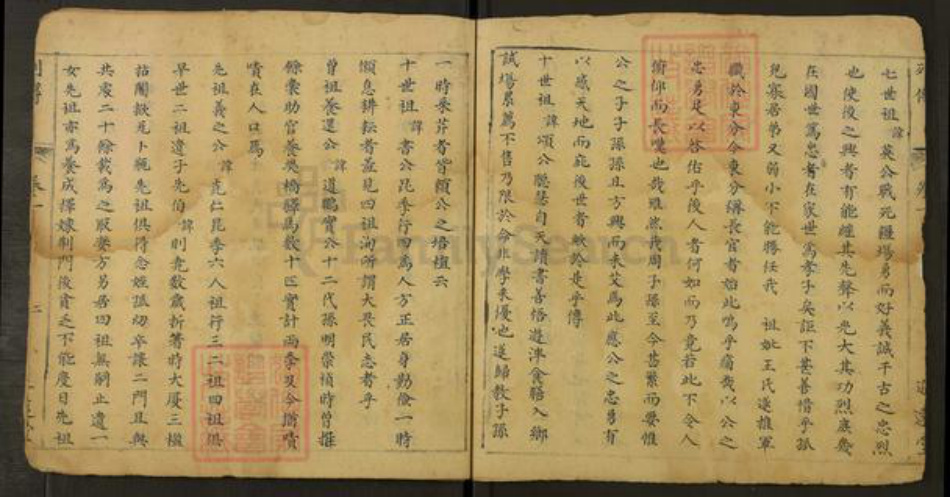 七世祖諱英公戰死疆場勇而好義誠千古之忠烈
也使後之興者有能繼其先聲以光大其功烈庶幾
在國世篤忠者在家世篤孝子矣詎不甚善惜乎孤
兒寡居弟又弱小不能勝任我 祖妣王氏遂推軍
職於東分今東分襲長官者始此嗚乎痛哉以公之
忠勇足以啓佑乎後人者何如而乃竟若此不令人
俯仰而長嘆也哉雖然我周子孫至今甚繁而要惟
公之子子孫孫且方興而未艾焉此應公之忠勇有
以感天地而庇後世者歟於是乎傳
十世祖諱頌公聰慧自天讀書善悟遊泮食餼入鄉
試場累薦不售乃限於命非學未優也遂歸教子孫
一時采芹者皆頌公之培植云
十世祖諱書公昆季行四爲人方正居身勤儉一時
懶息耕耘者羞見四祖洵所謂大畏民志者乎
曾祖養還公諱道鵬實公十二代孫明崇禎時曾推
餘粟助官養吳橋驛馬數十匹實計兩季及今嘖嘖
嘖在人口焉
先祖義之公諱克仁昆季六人祖行三二祖四祖俱
早世二祖遺子先伯諱則堯數歲析箸時大廈三楹
拈鬮歙先卜吉先祖俱得念姪孤幼卒讓二門且與
共爨二十餘載爲之服勞方另居四祖無嗣止遺一
女先祖亦爲養成擇嫁荆門後貧乏不能度日先祖
列傳
卷一
二
FamilySearch